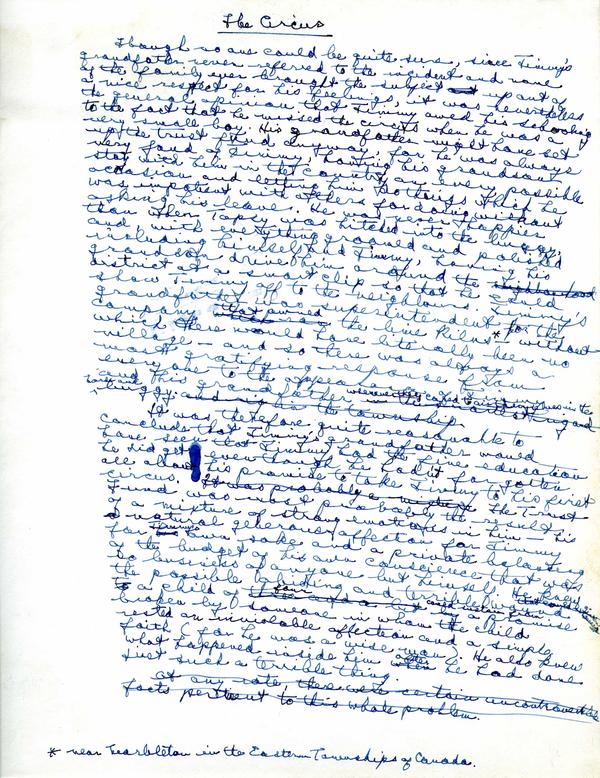 The Circus
Though no one could be quite sure, since Timmy's
grandfather never referred to the incident and none
of the family ever brought the subject up out of
a nice respect for his feelings, it was nevertheless
the general opinion that Timmy owed his schooling
to the fact that he missed the circus when he was a
very small boy. His grandfather might have set
up the trust fund anyway, for he was always
very fond of Timmy, having his grandson
stay with him in the country on every possible
occasion and letting him do things that he
was impatient with others for doing without
asking his leave. He was never happier
than when Topsy was hitched into the buggy,
and with everything groomed and polished
including himself and Timmy, having his
grandson drive him around the neighborhood
district at a smart clip so that he could
show Timmy off to the neighbours. Timmy's
grandfather was superintendent for the
company that owned the lime kilns * without
which there would have literally been no
village – and so there was always a
most gratifying response from
every one to the appearance
and this grandfather
in the township
It was therefore quite reasonable to
conclude that Timmy's grandfather would
have seen that Timmy had the fine education
he did get even though he hadn't forgotten
all about his promise to take Timmy to his first
circus. It was probably a mixture The Trust
Fund was most probably the result
of a mixture of strong emotions in him – his
a natural generous affection for Timmy
for his own sake and a private balancing
of the budget of his own conscience that was
no business of anyone but himself. He knew
the possible abiding and terrible
to a child of four of a promise
broken by someone in whom the child
rested an inviolable affection and a simple
faith (for he was a wise man). He also knew
what happened inside him after he had done
just such a terrible thing.
At any rate, there were certain uncontrovertible
facts pertinent to this whole problem.
* near Marbleton in the Eastern Townships of Canada.